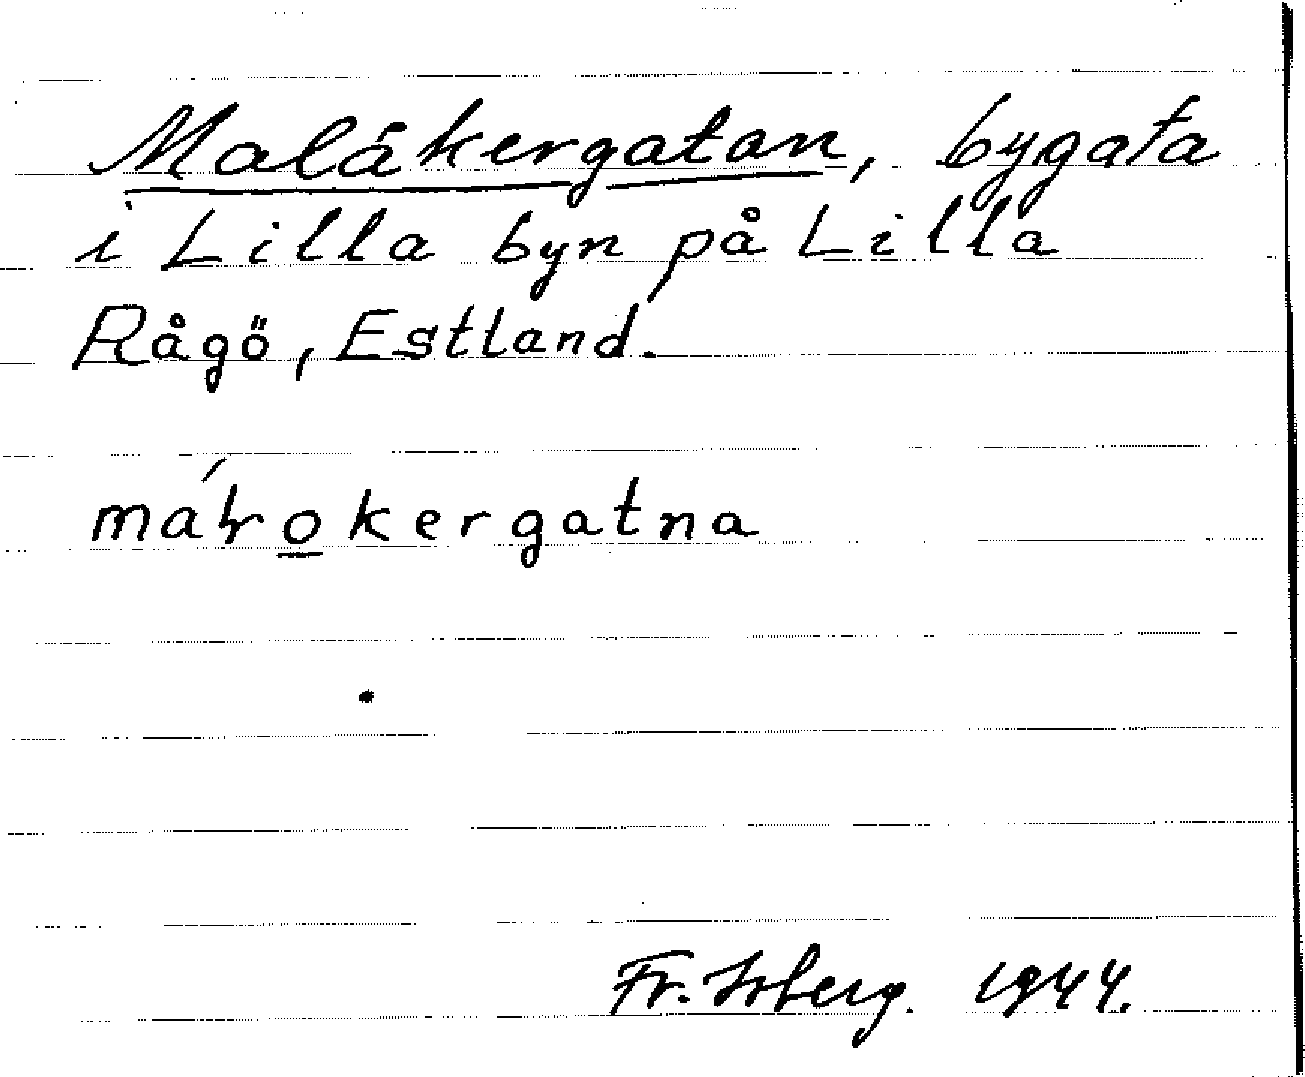 Malåkergatan, bygata
i Lilla byn på Lilla
Rågö, Estland.
máɽo̲kergatna
Fr. Isberg. 1944.